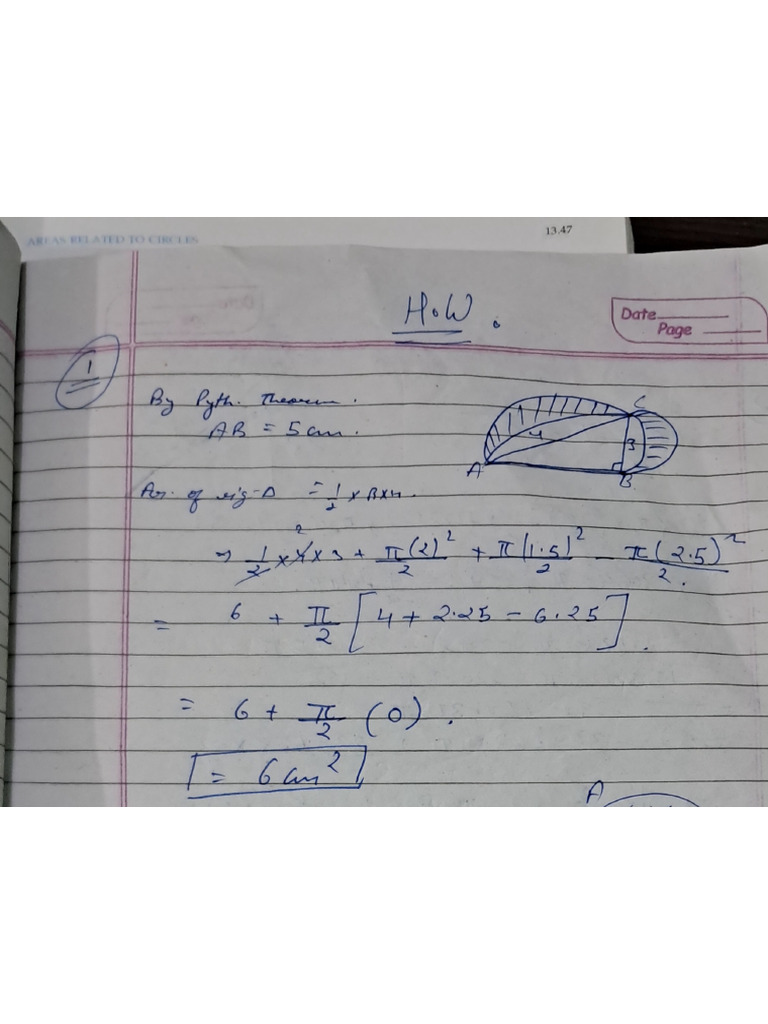 AREAS RELATED TO CIRCLES 13.47
H.W.
Date
Page
1
By Pyth. Theorem.
AB = 5cm.
C
4
3
A
B
Ar. of rig-Δ = 1/2 × B×H.
⇒ 1/2 × 4 2 × 3 + π(2)²/2 + π(1.5)²/2 - π(2.5)²/2.
= 6 + π/2 [4 + 2.25 - 6.25].
= 6 + π/2 (0).
= 6 cm²
A